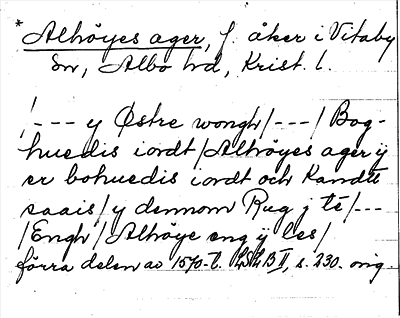 * Alhöyes ager, f. åker i Vitaby
sn, Albo hd, Krist. l.
/--- y Østre wongh/---/ Bog-
huedis iordt/Alhöyes ager ÿ
er bohuedis iordt och Kandte
saais/ y dennom Rug j te/---
/Engh/ Alhöye eng ÿ les/
förra delen av 1570-t. B II, s. 230. orig.